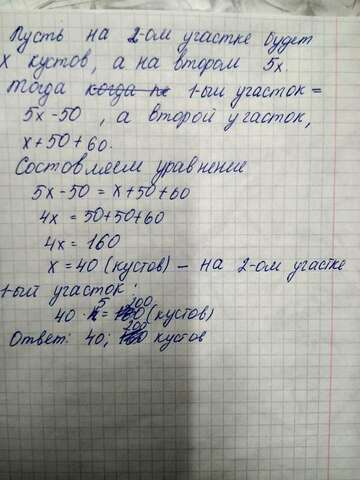 Пусть на 2-ом участке будет
x кустов, а на втором 5x.
Тогда когда 1-ый участок =
5x-50, а второй участок,
x+50+60.
Состовляем уравнение
5x-50 = x+50+60
4x = 50+50+60
4x = 160
x = 40 (кустов) - на 2-ом участке
1-ый участок:
40 · 5 = 200 (кустов)
Ответ: 40; 200 кустов